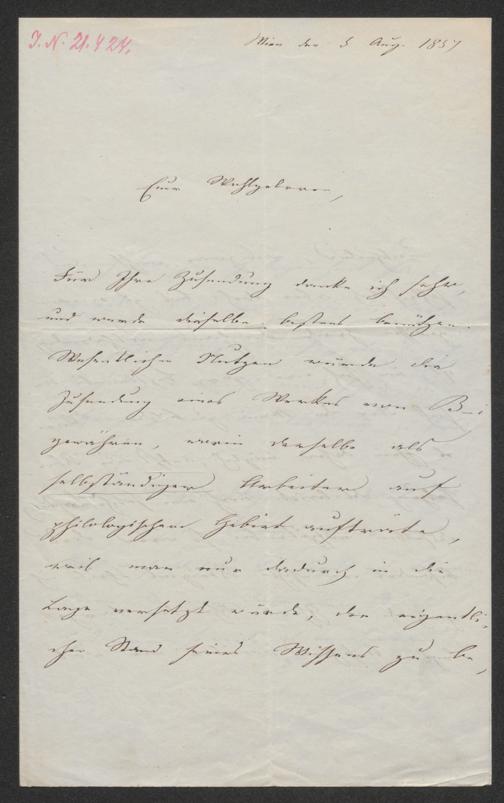 I. N. 21.424.
Wien den 5 Aug. 1857
Euer Wohlgeboren,
Für Ihre Zusendung danke ich sehr,
und werde dieselbe bestens benützen.
Wesentlichen Nutzen würde die
Zusendung eines Werkes von B–i
gewähren, worin derselbe als
selbständiger Arbeiter auf
philologischem Gebiet aufträte,
weil man nur dadurch in die
Lage versetzt würde, den eigentli-
chen Stand seines Wissens zu be-